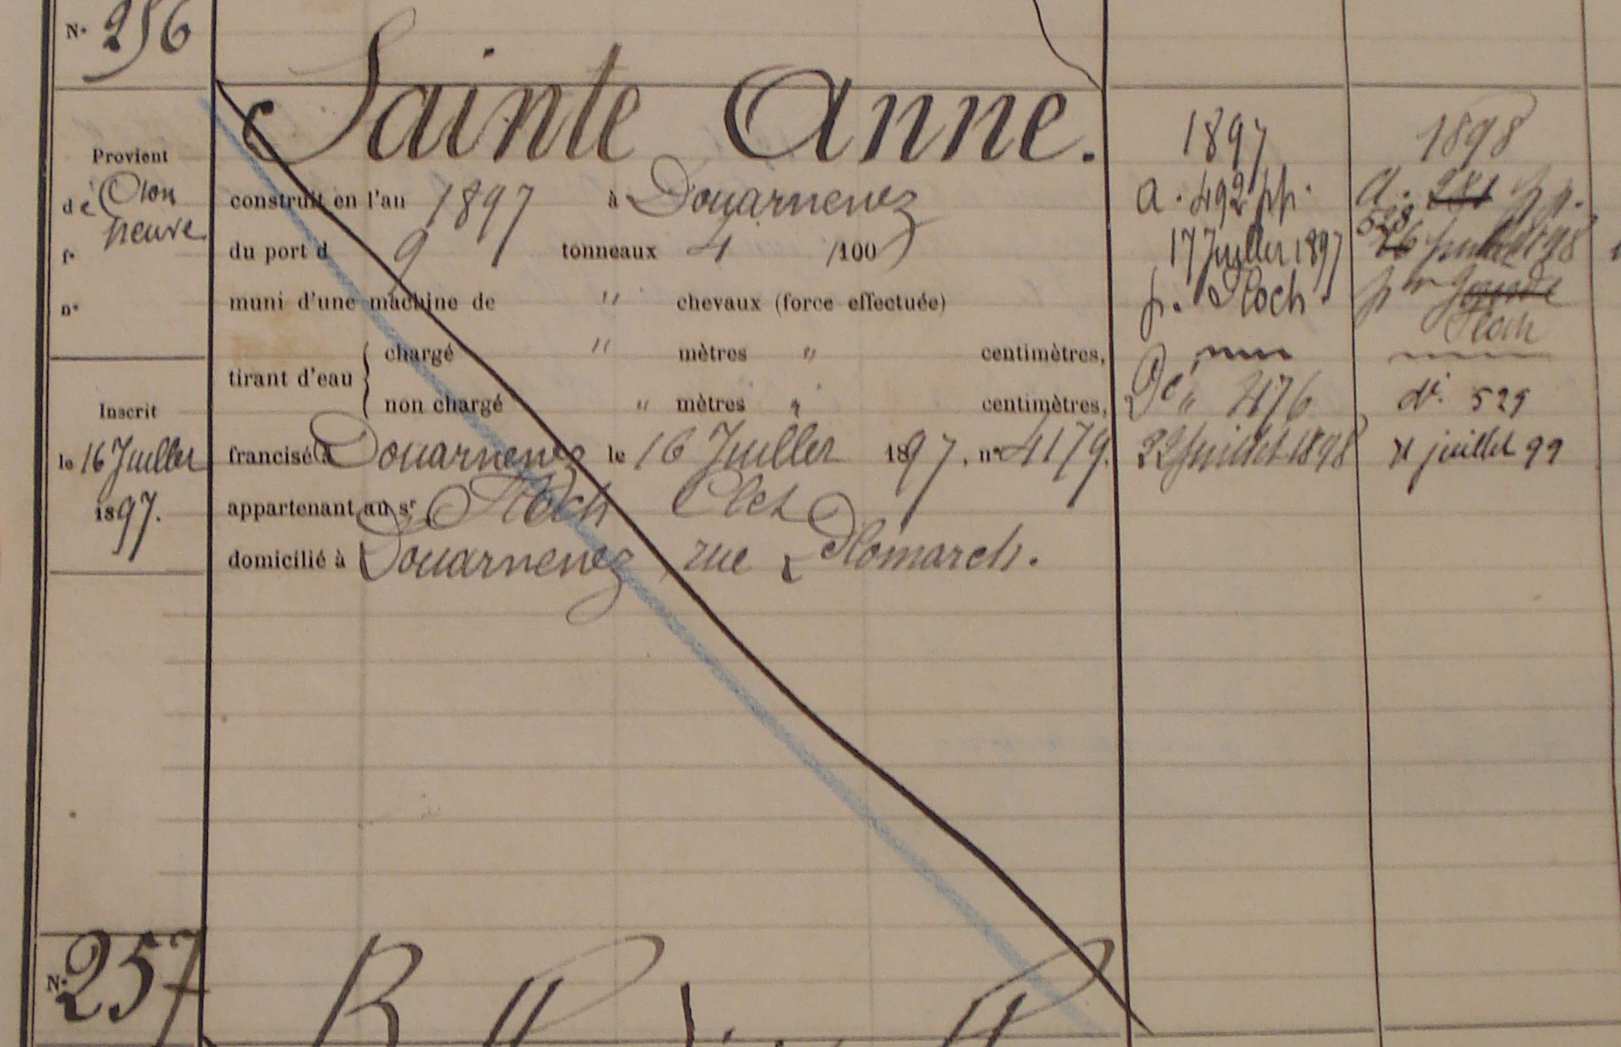 N° 256
Sainte Anne.
Provient
de
neuve
f°
n°
Inscrit
le 16 Juillet
1897.
construit en l'an 1897 à Douarnenez
du port d 9 tonneaux 4 /100
muni d'une machine de " chevaux (force effectuée)
tirant d'eau { chargé " mètres " centimètres,
non chargé " mètres " centimètres,
francisé à Douarnenez le 16 Juillet 1897, n° 4179.
appartenant au sr Floch Clet
domicilié à Douarnenez, rue Plomarch.
1897
a. 492 pp.
17 Juillet 1897
p. Floch
Dé " 476
22 juillet 1898
1898
a. 281 pp.
528
26 juillet 98
Floch
dé. 529
21 juillet 99
N° 257